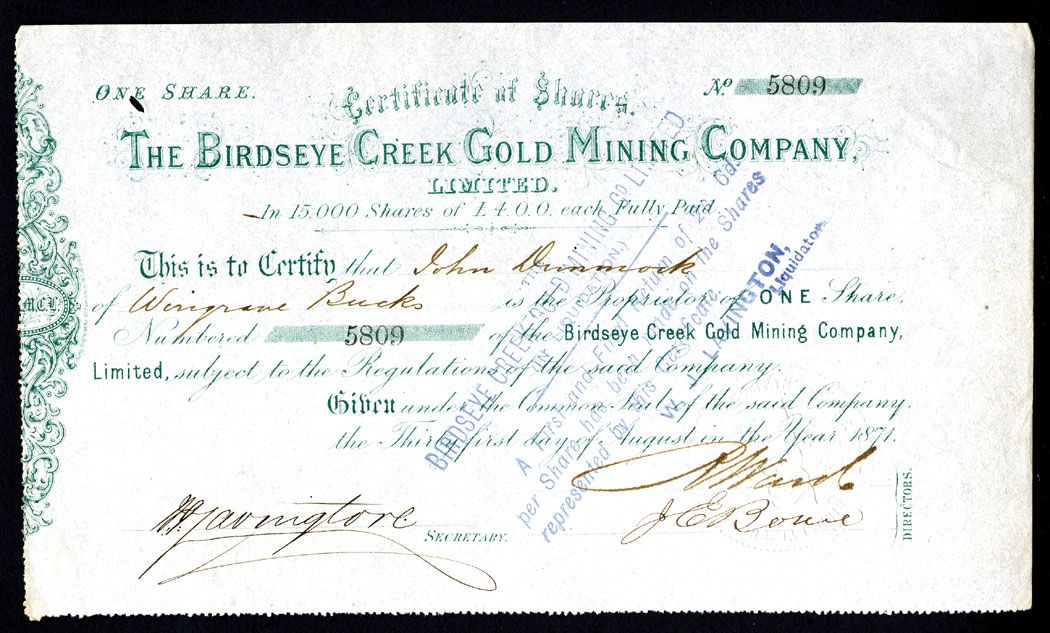 ONE SHARE.
Certificate of Shares.
No 5809
THE BIRDSEYE CREEK GOLD MINING COMPANY,
LIMITED.
In 15,000 Shares of £4.0.0. each Fully Paid
This is to Certify that John Dimmock
of Wingrave Bucks is the Proprietor of ONE Share,
Numbered 5809 of the Birdseye Creek Gold Mining Company,
Limited, subject to the Regulations of the said Company.
Given under the Common Seal of the said Company,
the Thirty first day of August in the Year 1871.
R Ward
W. J. Lavington
SECRETARY.
DIRECTORS.
M.C.L.
THE
BIRDSEYE CREEK GOLD MINING CO LIMITED
(IN LIQUIDATION)
A First and Final Return of
per Share has been made on the Shares
represented by this Cess Scale.
W. J. LAVINGTON,
Liquidator